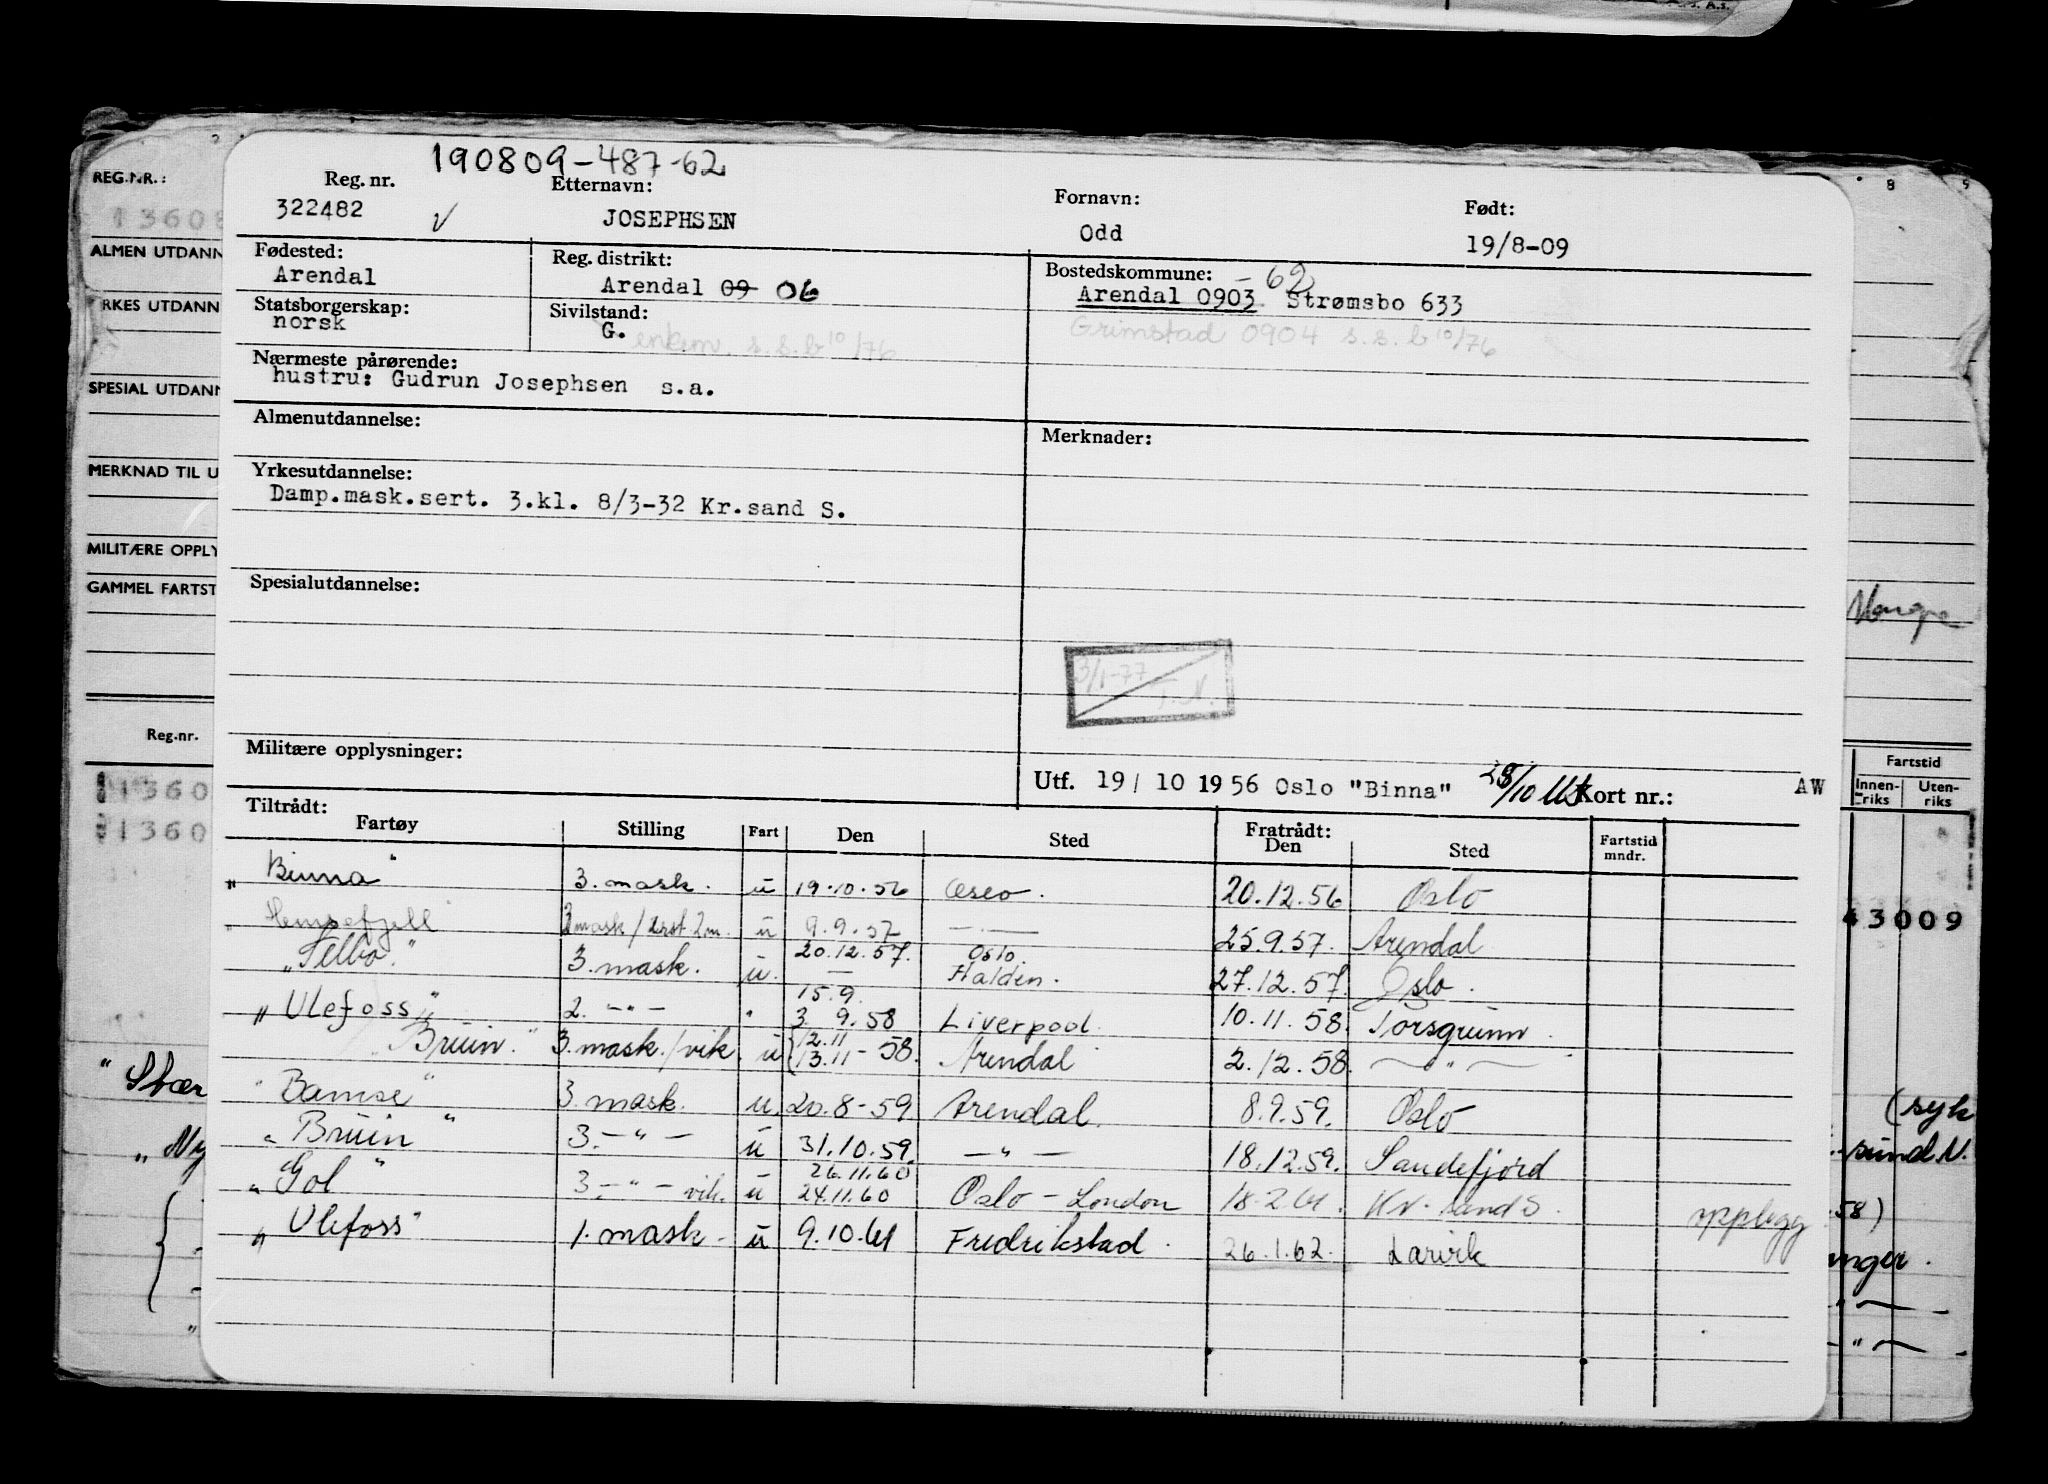 190809-487-62
Reg. nr. Etternavn: Fornavn: Født:
322482 √ JOSEPHSEN Odd 19/8-09
Fødested: Reg. distrikt: Bostedskommune:
Arendal Arendal 09 06 Arendal 0903 -62 Strømsbo 633
Statsborgerskap: Sivilstand: Grimstad 0904 s.s.b 10/76
norsk G. enkem. s.s.b 10/76
Nærmeste pårørende:
hustru: Gudrun Josephsen s.a.
Almenutdannelse: Merknader:
Yrkesutdannelse:
Damp.mask.sert. 3.kl. 8/3-32 Kr.sand S.
Spesialutdannelse:
3/1-77
Militære opplysninger:
Utf. 19/ 10 1956 Oslo "Binna" 28/10 Kort nr.: AW
Tiltrådt: Fratrådt:
Fartøy Stilling Fart Den Sted Den Sted Fartstid mndr.
"Binna" 3. mask. u 19.10.56 Oslo. 20.12.56 Oslo
u 9.9.57 — . — 25.9.57. Arendal
"Selbo." 3. mask. u. 20.12.57. — Oslo. Halden. 27.12.57. Oslo.
"Ulefoss" 2. —"— " 15.9. 3. 9.58 Liverpool. 10.11.58. Porsgrunn
"Bruin." 3. mask./vik. u 12.11 13.11-58. Arendal 2.12.58. —"—
"Bamse" 3. mask. u. 20.8-59. Arendal. 8.9.59. Oslo
"Bruin" 3. —"— u 31.10.59. —"— 18.12.59. Sandefjord
"Gol" 3. —"— vik. u 26.11.60 24.11.60 Oslo - London 18.2.61. Kr. sand S. opplegg
"Ulefoss" 1. mask. u 9.10.61 Fredrikstad. 26.1.62. Larvik
REG.NR.:
13608
ALMEN UTDANN
YRKES UTDANN
SPESIAL UTDANN
MERKNAD TIL U
MILITÆRE OPPLY
GAMMEL FARTST
Reg.nr.
1360
1360
8 9
Fartstid
Innenriks Utenriks
43009
(syk
sund N.
58)
anger.